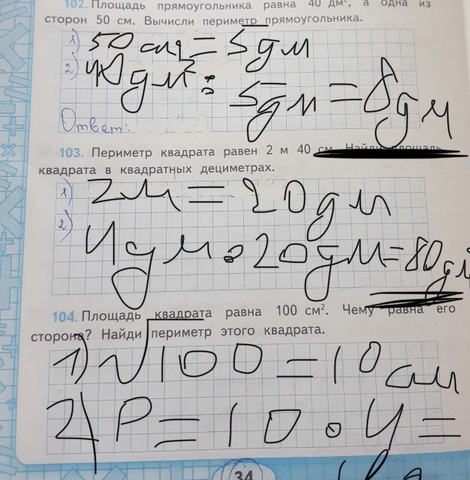 102. Площадь прямоугольника равна 40 дм², а одна из
сторон 50 см. Вычисли периметр прямоугольника.
1) 50 см = 5 дм
2) 40 дм² :
5 дм = 8 дм
Ответ:
103. Периметр квадрата равен 2 м 40 см. Найди площадь
квадрата в квадратных дециметрах.
1) 2м = 20 дм
2)
4 дм · 20 дм = 80 дм
104. Площадь квадрата равна 100 см². Чему равна его
сторона? Найди периметр этого квадрата.
1) √100 = 10 см
2) P = 10 · 4 =
34